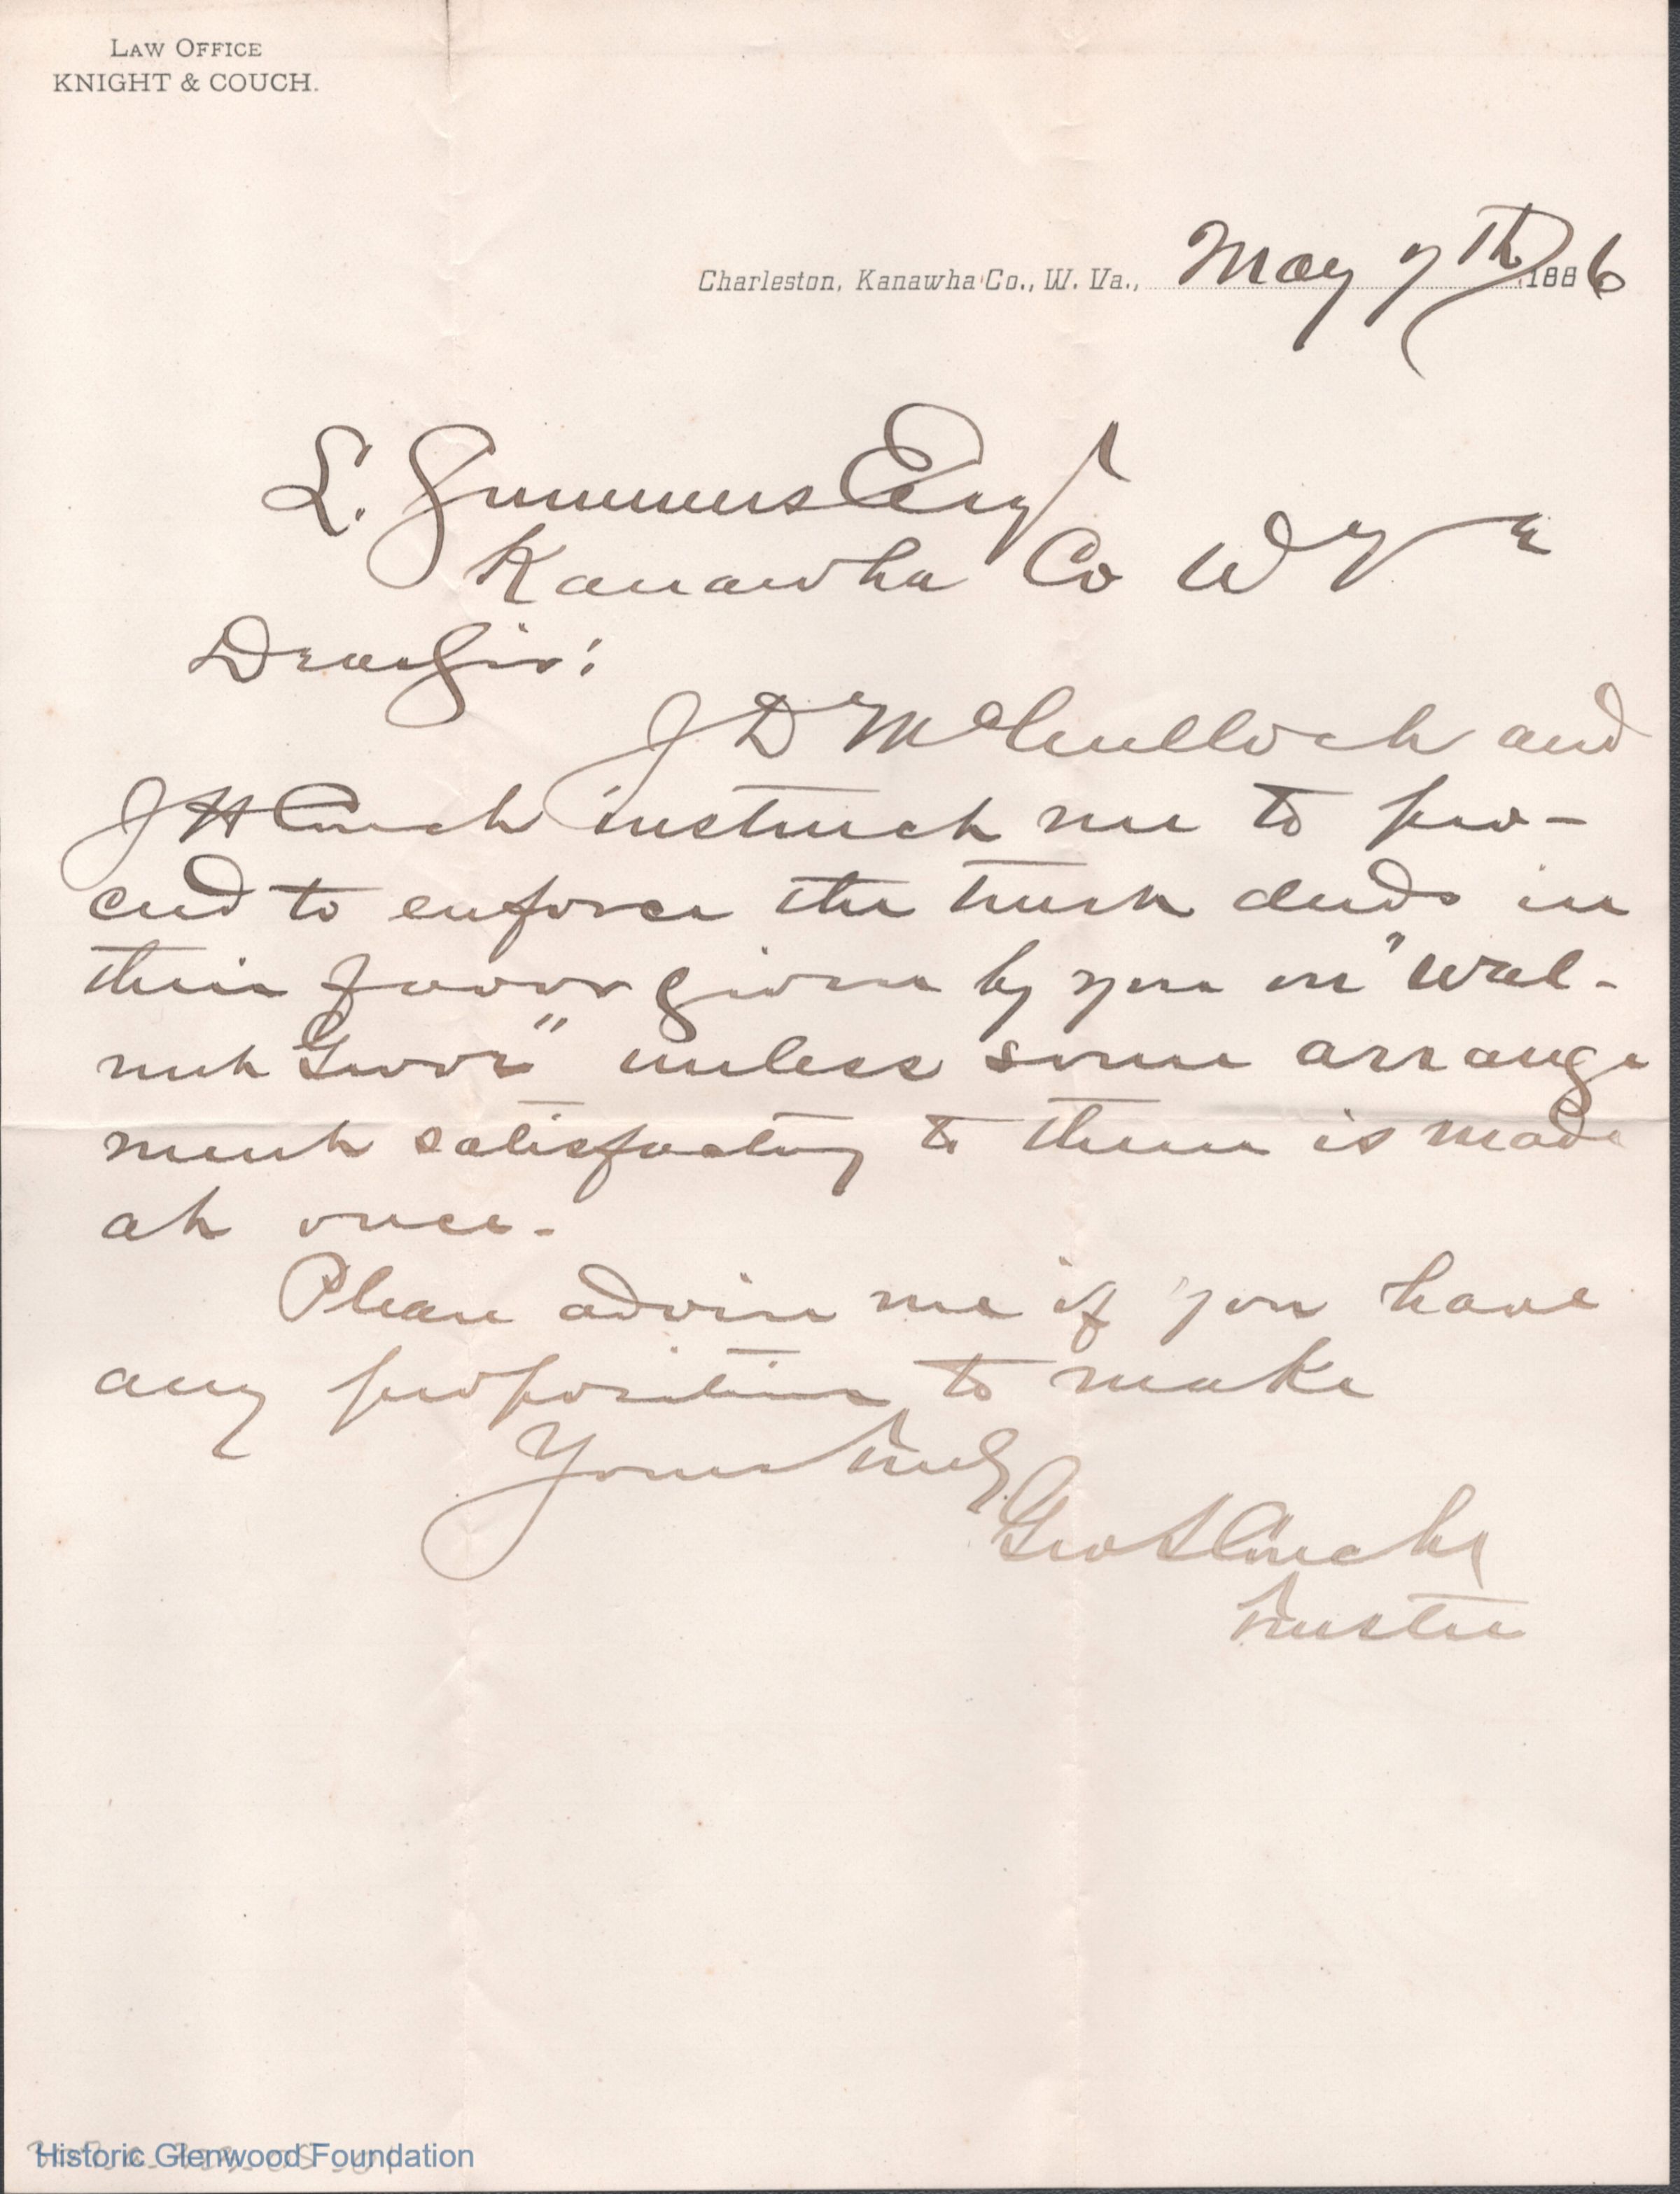 LAW OFFICE
KNIGHT & COUCH.
Charleston, Kanawha Co., W. Va., May 7th 1886
L. Summers Esqr
Kanawha Co W Va
Dear Sir:
J D McCulloch and
J H Couch instruct me to pro-
ceed to enforce the trust deeds in
their favor given by you on "Wal-
nut Grove" unless some arrange
ment satisfactory to them is made
at once.
Please advise me if you have
any proposition to make
Yours truly
Geo S Couch
Trustee
Historic Glenwood Foundation